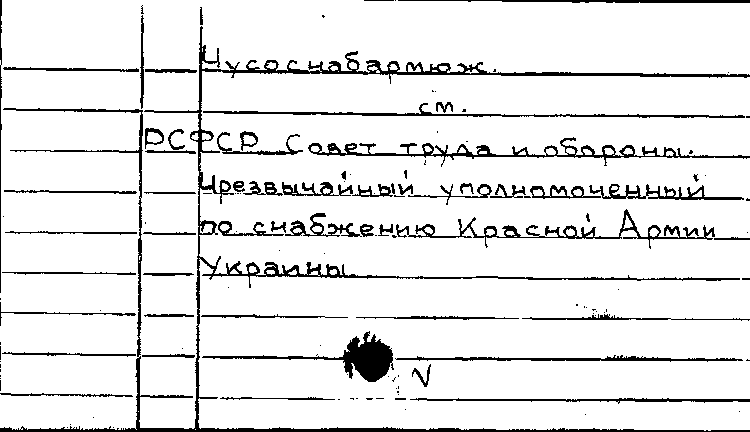 Чусоснабармюж.
см.
РСФСР. Совет труда и обороны.
Чрезвычайный уполномоченный
по снабжению Красной Армии
Украины.
V